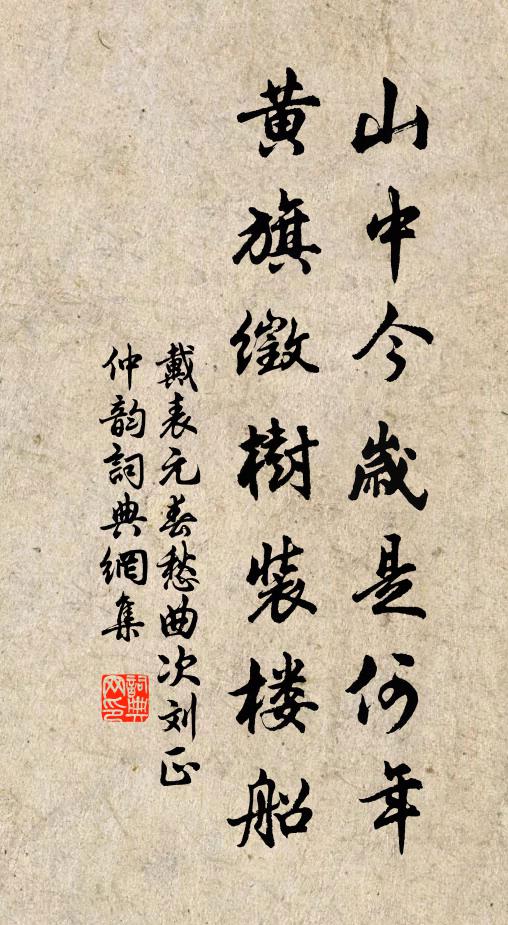 山中今歲是何年
黄旗徵樹裝楼船
戴表元春愁曲次刘正
仲韵詞典網集
詞典
网印